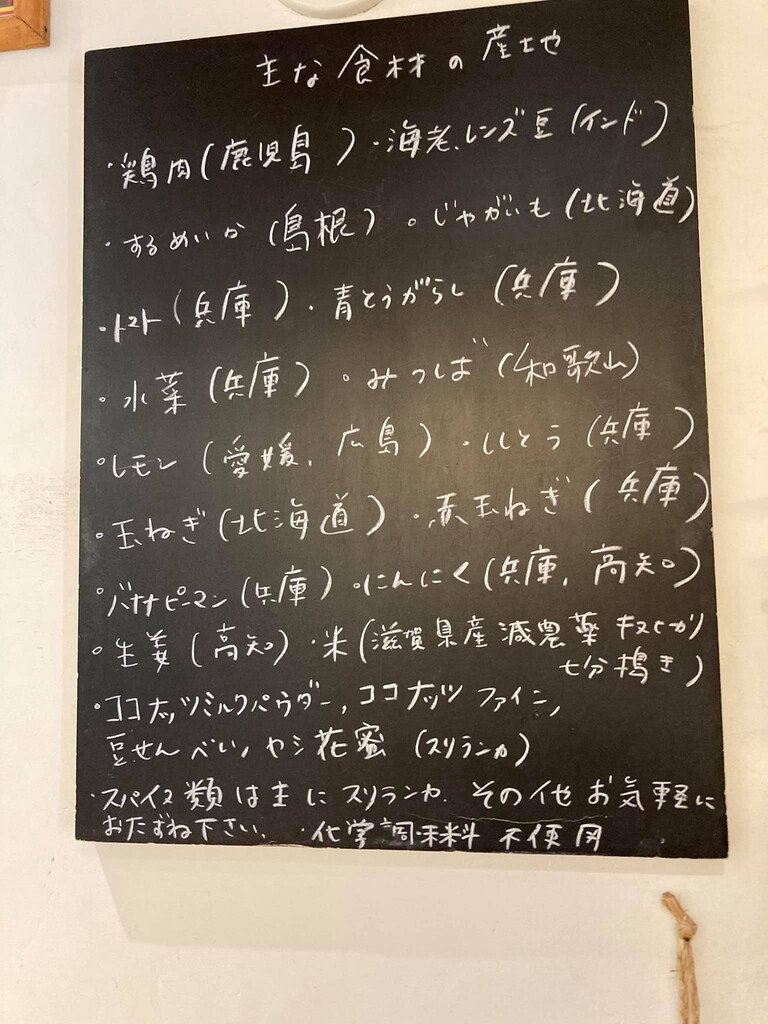 主な食材の産地
・鶏肉(鹿児島)・海老、レンズ豆(インド)
・するめいか(島根)・じゃがいも(北海道)
・トマト(兵庫)・青とうがらし(兵庫)
・水菜(兵庫)・みつば(和歌山)
・レモン(愛媛、広島)・ししとう(兵庫)
・玉ねぎ(北海道)・赤玉ねぎ(兵庫)
・バナナピーマン(兵庫)・にんにく(兵庫、高知)
・生姜(高知)・米(滋賀県産減農薬キヌヒカリ
七分搗き)
・ココナッツミルクパウダー、ココナッツファイン、
豆せんべい、ヤシ花蜜(スリランカ)
・スパイス類は主にスリランカ。その他お気軽に
おたずね下さい。・化学調味料不使用